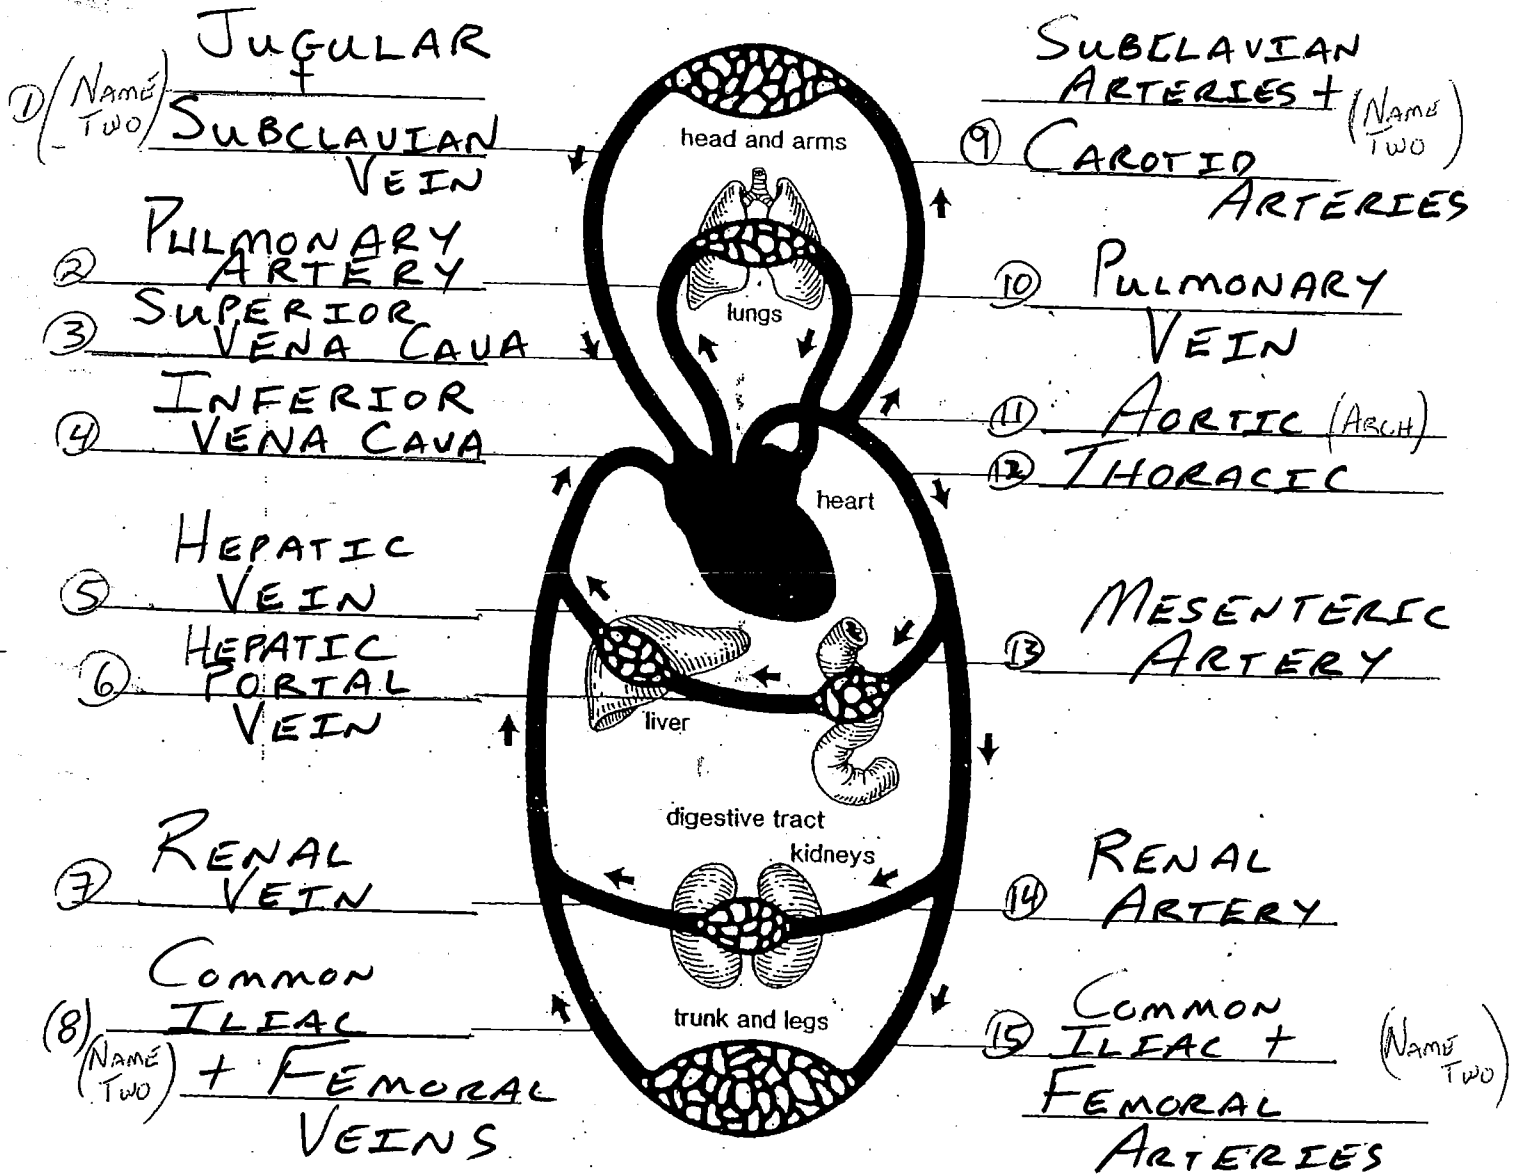 JUGULAR
+
① (NAME TWO) SUBCLAVIAN
VEIN
② PULMONARY
ARTERY
③ SUPERIOR
VENA CAVA
④ INFERIOR
VENA CAVA
⑤ HEPATIC
VEIN
⑥ HEPATIC
PORTAL
VEIN
⑦ RENAL
VEIN
(8) COMMON
ILIAC
(NAME TWO) + FEMORAL
VEINS
head and arms
lungs
heart
liver
digestive tract
kidneys
trunk and legs
SUBCLAVIAN
ARTERIES +
⑨ CAROTID (NAME TWO)
ARTERIES
⑩ PULMONARY
VEIN
⑪ AORTIC (ARCH)
⑫ THORACIC
⑬ MESENTERIC
ARTERY
⑭ RENAL
ARTERY
⑮ COMMON
ILIAC + (NAME TWO)
FEMORAL
ARTERIES